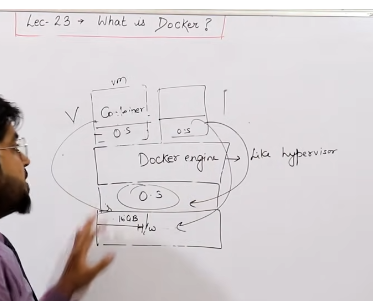 Lec-23 → What is Docker?
vm
Container
O.S
O.S
Docker engine → Like hypervisor
O.S
16GB
H/W